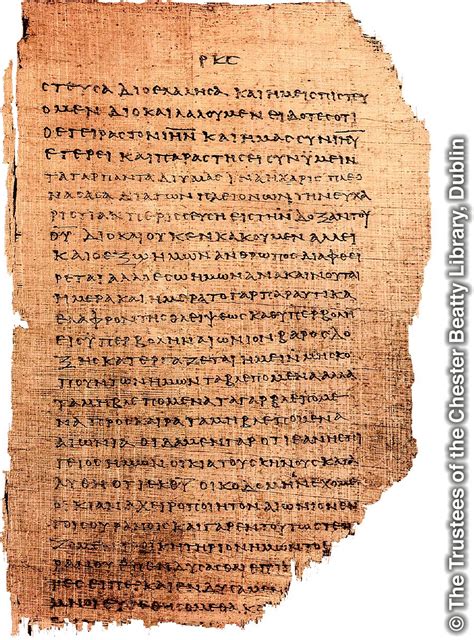 ΡΚϚ
ϹΤΕΥϹΑ ΔΙΟ ΕΛΑΛΗϹΑ ΚΑΙ ΗΜΕΙϹ ΠΙϹΤΕΥ
ΟΜΕΝ ΔΙΟ ΚΑΙ ΛΑΛΟΥΜΕΝ ΕΙΔΟΤΕϹ ΟΤΙ
Ο ΕΓΕΙΡΑϹ ΤΟΝ ΙΗΝ ΚΑΙ ΗΜΑϹ ϹΥΝ ΙΗΥ
ΕΓΕΡΕΙ ΚΑΙ ΠΑΡΑϹΤΗϹΕΙ ϹΥΝ ΥΜΕΙΝ
ΤΑ ΓΑΡ ΠΑΝΤΑ ΔΙ ΥΜΑϹ ΙΝΑ Η ΧΑΡΙϹ ΠΛΕΟ
ΝΑϹΑϹΑ ΔΙΑ ΤΩΝ ΠΛΕΙΟΝΩΝ ΤΗΝ ΕΥΧΑ
ΡΙϹΤΙΑΝ ΠΕΡΙϹϹΕΥϹΗ ΕΙϹ ΤΗΝ ΔΟΞΑΝ ΤΟΥ
ΘΥ ΔΙΟ ΚΑΙ ΟΥΚ ΕΝΚΑΚΟΥΜΕΝ ΑΛΛ ΕΙ
ΚΑΙ Ο ΕΞΩ ΗΜΩΝ ΑΝΘΡΩΠΟϹ ΔΙΑΦΘΕΙ
ΡΕΤΑΙ ΑΛΛ Ο ΕϹΩ ΗΜΩΝ ΑΝΑΚΑΙΝΟΥΤΑΙ
ΗΜΕΡΑ ΚΑΙ ΗΜΕΡΑ ΤΟ ΓΑΡ ΠΑΡΑΥΤΙΚΑ
ΕΛΑΦΡΟΝ ΤΗϹ ΘΛΕΙΨΕΩϹ ΚΑΘ ΥΠΕΡΒΟΛΗ
ΕΙϹ ΥΠΕΡΒΟΛΗΝ ΑΙΩΝΙΟΝ ΒΑΡΟϹ ΔΟ
ΞΗϹ ΚΑΤΕΡΓΑΖΕΤΑΙ ΗΜΕΙΝ ΜΗ ϹΚΟ
ΠΟΥΝΤΩΝ ΗΜΩΝ ΤΑ ΒΛΕΠΟΜΕΝΑ ΑΛΛΑ
ΤΑ ΜΗ ΒΛΕΠΟΜΕΝΑ ΤΑ ΓΑΡ ΒΛΕΠΟΜΕ
ΝΑ ΠΡΟϹΚΑΙΡΑ ΤΑ ΜΗ ΒΛΕΠΟΜΕΝΑ
ΑΙΩΝΙΑ ΟΙΔΑΜΕΝ ΓΑΡ ΟΤΙ ΕΑΝ Η ΕΠΙ
ΓΕΙΟϹ ΗΜΩΝ ΟΙΚΙΑ ΤΟΥ ϹΚΗΝΟΥϹ ΚΑΤΑ
ΛΥΘΗ ΟΤΙ ΕΚ ΘΥ ΟΙΚΟΔΟΜΗΝ ΕΧΟΜΕ
ΟΙΚΙΑΝ ΑΧΕΙΡΟΠΟΙΗΤΟΝ ΑΙΩΝΙΟΝ ΕΝ
ΤΟΙϹ ΟΥΡΑΝΟΙϹ ΚΑΙ ΓΑΡ ΕΝ ΤΟΥΤΩ ϹΤΕΝ
ΖΟΜΕΝ ΤΟ ΟΙΚΗΤΗΡΙΟΝ ΗΜΩΝ ΤΟ
ΟΥΡΑΝΟΥ ΕΠΕΝΔΥϹΑϹΘΑΙ ΕΠΙΠ
ΤΕϹ ΕΙΠΕΡ ΚΑΙ ΕΝΔΥϹΑΜΕ
ΜΝΟΙ ΕΥΡΕΘΗϹΟΜΕΘΑ
© The Trustees of the Chester Beatty Library, Dublin